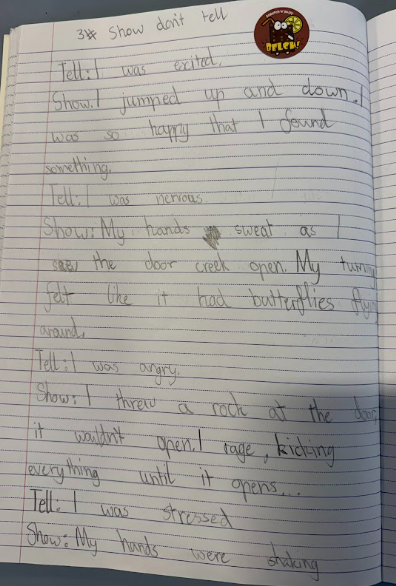 3# Show don't tell
BELCH!
Tell: I was exited.
Show. I jumped up and down. I
was so happy that I found
something.
Tell: I was nervous
Show: My hands sweat as I
saw the door creek open. My tummy
felt like it had butterflies flying
around.
Tell: I was angry.
Show: I threw a rock at the door,
it wouldn't open. I rage, kicking
everything until it opens...
Tell: I was stressed
Show: My hands were shaking